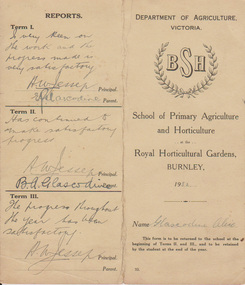 REPORTS.
Term I.
Is very keen on
the work and the
progress made is
very satisfactory
A W Jessep
Principal.
Parent.
Term II.
Has continued to
make satisfactory
progress
A W Jessep
Principal.
B.A. Glascodine
Parent.
Term III.
The progress throughout
the year has been
satisfactory.
A W Jessep
Principal.
Parent.
DEPARTMENT OF AGRICULTURE,
VICTORIA.
BSH
School of Primary Agriculture
and Horticulture
at the
Royal Horticultural Gardens,
BURNLEY,
Name Glascodine
This form is to be returned to the school at the
beginning of Terms II. and III., and to be retained
by the student at the end of the year.